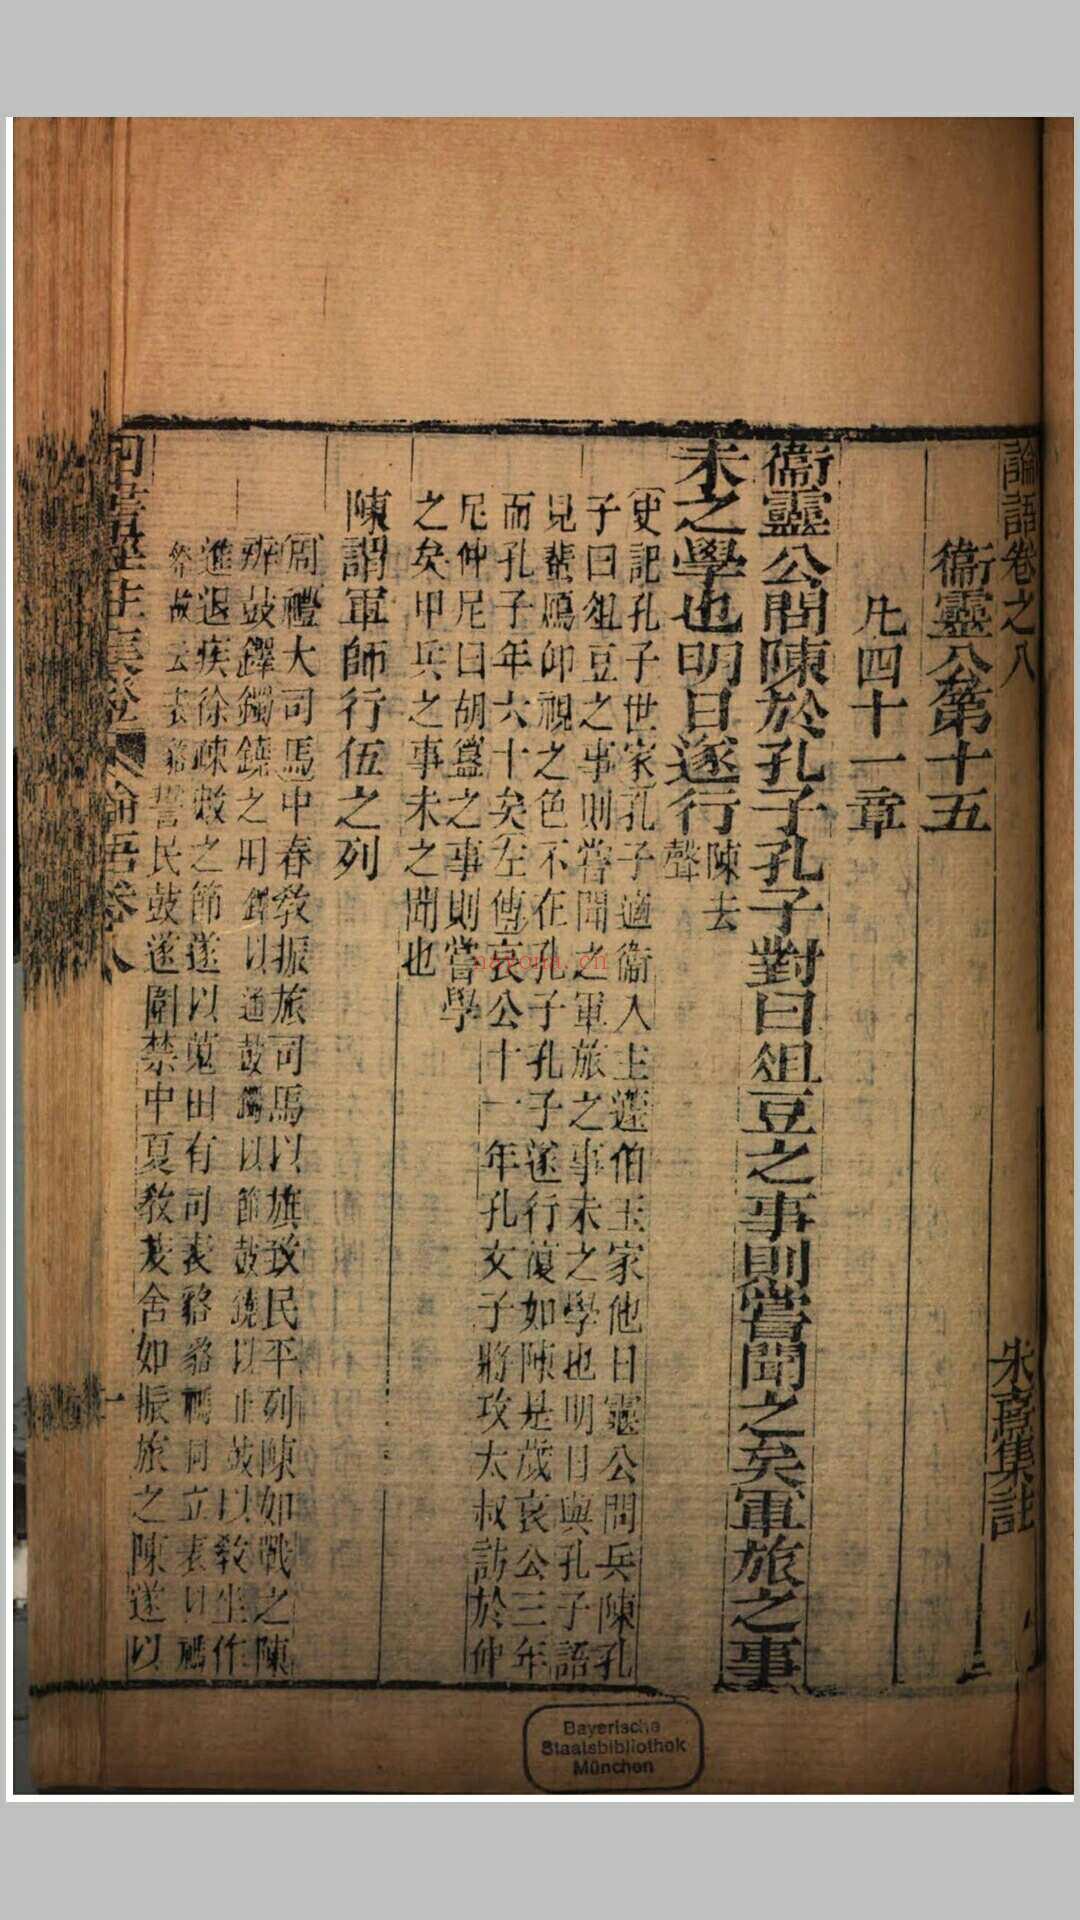 論語卷之八
朱熹集註
衞靈公第十五
凡四十一章
衞靈公問陳於孔子孔子對曰俎豆之事則嘗聞之矣軍旅之事
未之學也明日遂行
陳去
聲
史記孔子世家孔子適衞入主蘧伯玉家他日靈公問兵陳孔
子曰俎豆之事則嘗聞之軍旅之事未之學也明日與孔子語
見蜚鴈仰視之色不在孔子孔子遂行復如陳是歲哀公三年
而孔子年六十矣左傳哀公十一年孔文子將攻太叔訪於仲
尼仲尼曰胡簋之事則嘗學
之矣甲兵之事未之聞也
陳謂軍師行伍之列
周禮大司馬中春敎振旅司馬以旗致民平列陳如戰之陳
辨鼓鐸鐲鐃之用鐸以通鼓鐲以節鼓鐃以止鼓以敎坐作
進退疾徐疎數之節遂以蒐田有司表貉貉禡同立表以禡
祭故云表貉誓民鼓遂圍禁中夏敎茇舍如振旅之陳遂以
四書
集
論語卷八
一
Bayerische
Staatsbibliothek
München
nayona.cn